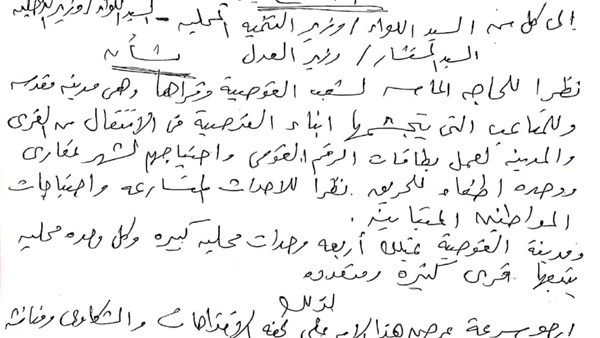 إلى كل من السيد اللواء / وزير التنمية المحلية - السيد اللواء / وزير الداخلية
السيد المستشار / وزير العدل بشأن
نظرا للحاجه الماسه لشعب القوصية وقراها وهى مدينه مقدسه
وللمتاعب التى يتجشمها ابناء القوصية فى الانتقال من القرى
والمدينه لعمل بطاقات الرقم القومى واحتياجهم لشهر عقارى
ووحده اطفاء للحريق نظرا للاحداث المتسارعه واحتياجات
المواطنين المتباينه .
ومدينة القوصية تمتلك أربعه وحدات محليه كبيره وكل وحده محليه
يتبعها قرى كثيرة ومتعدده
لذلك
ارجو سرعة عرض هذا الامر على لجنه الاقتراحات والشكاوى ومناقشه